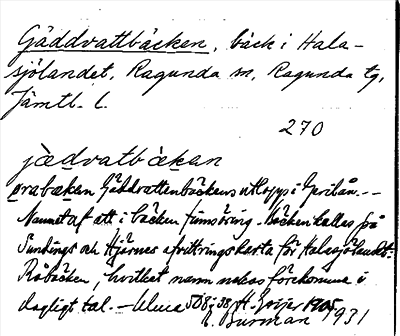 Gäddvattbäcken, bäck i Hala-
sjölandet, Ragunda sn, Ragunda tg,
Jämtl. l.
270
jæ̀dvatbæ̀kan
Gäddvattenbäckens utlopp i
Namnet af att i bäcken finns öring - Bäcken kallas på
och Hjärnes afvittringskarta för Halasjölandet:
Råbäcken, hvilket namn förekomma i
dagligt tal. – Geijer 1905
Burman 1931